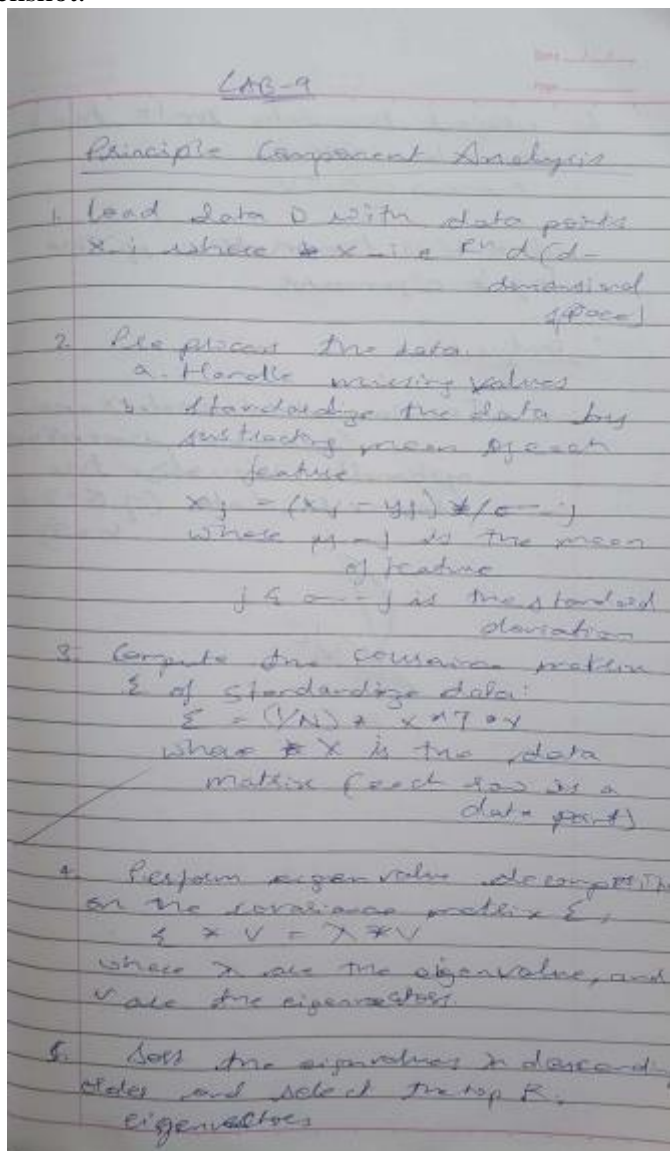 enshot.
Date
Page
LAB-9
Principle Component Analysis
1. Load data D with data points
x_i where x_i e R^d (d-
dimensional
space)
2. Pre process the data.
a. Handle missing values
b. Standardize the data by
sustracting mean of each
feature
xj = (xj - μj) */σ_j
where μ_j is the mean
of feature
j & σ_j is the standard
deviation
3. Compute the covariance matrix
Σ of standardize data:
Σ = (1/N) * X^T * X
where X is the data
matrix (each row is a
data point)
4. Perform eigen value decomposition
on the covariance matrix Σ,
Σ * v = λ * v
where λ are the eigenvalue, and
v are the eigenvectors
5. Sort the eigenvalues in descending
order and select the top k.
eigenvectors